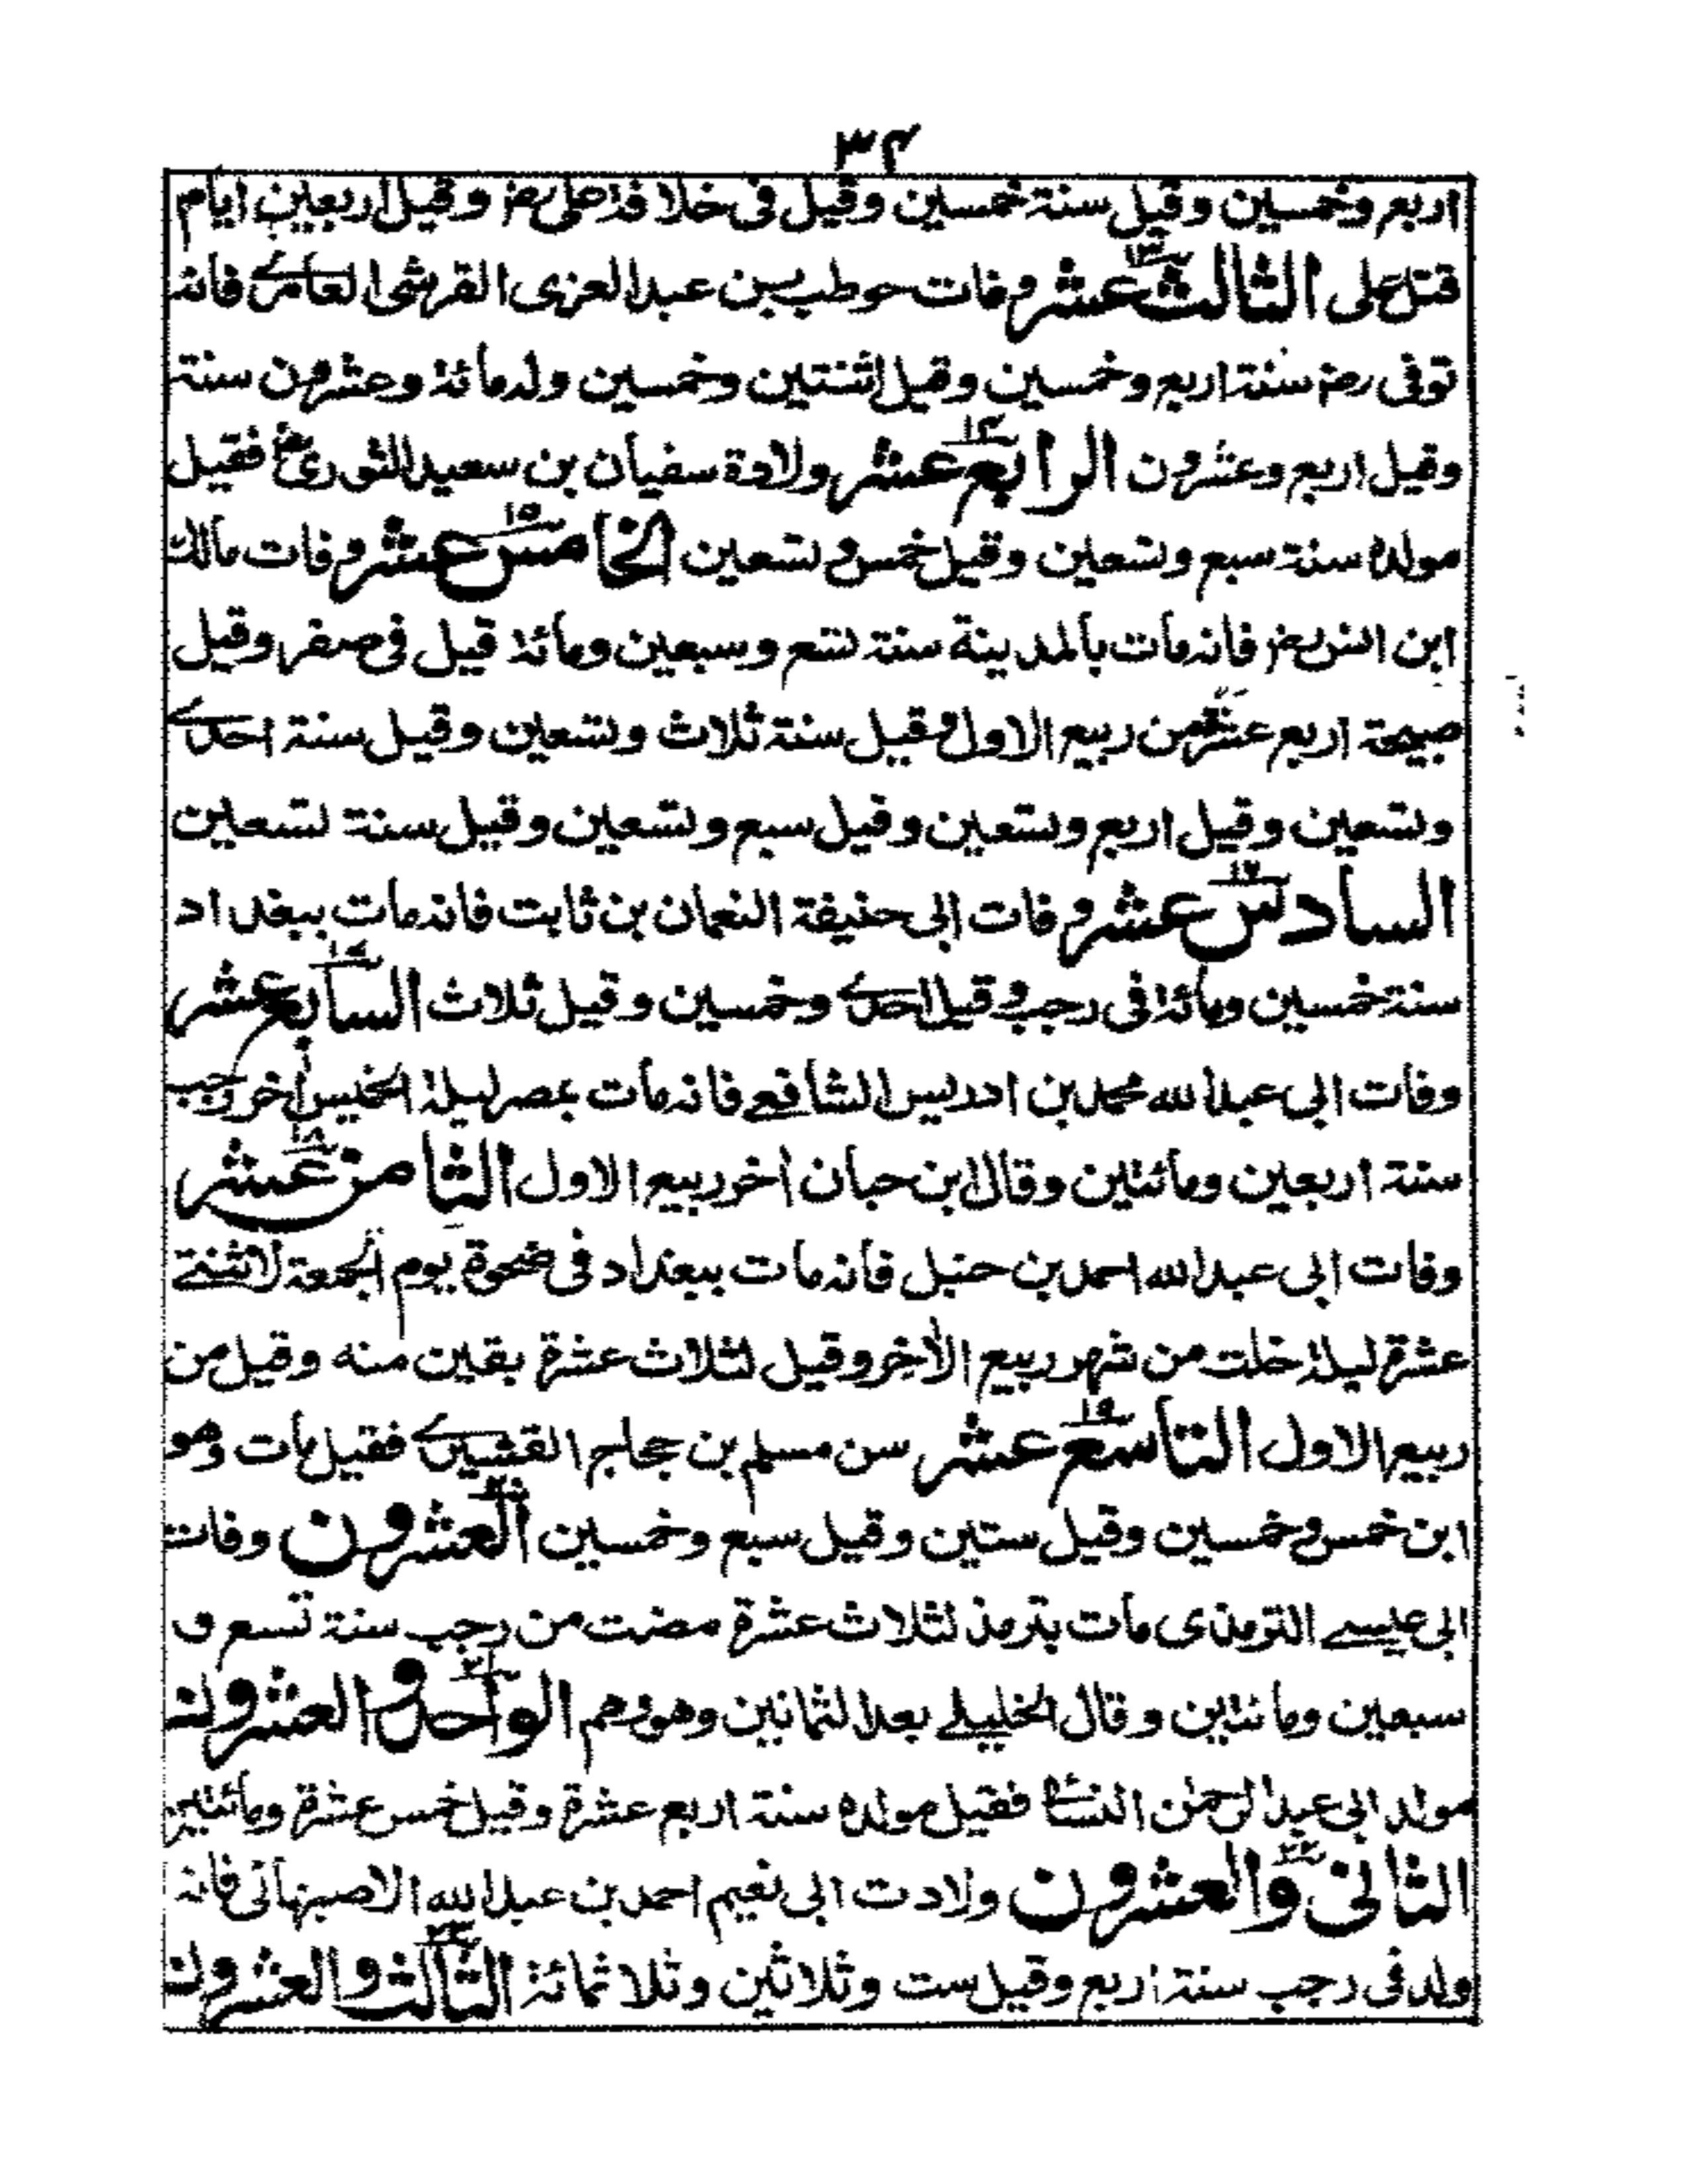 ٣٤
اربع وخمسين وقيل سنة خمسين وقيل فى خلافة على رض وقيل اربعين ايام
قتل على الثالث عشر وفات حوطب بن عبد العزى القرشى العامرے فانه
توفى رض سنة اربع وخمسين وقيل اثنتين وخمسين وله مائة وعشرون سنة
وقيل اربع وعشرون الرابع عشر ولادة سفيان بن سعيد الثورى فقيل
مولده سنة سبع وتسعين وقيل خمس وتسعين الخامس عشر وفات مالك
ابن انس رض فانه مات بالمدينة سنة تسع وسبعين ومائة قيل فى صفر وقيل
صبيحة اربع عشرة من ربيع الاول وقيل سنة ثلاث وتسعين وقيل سنة احدے
وتسعين وقيل اربع وتسعين وقيل سبع وتسعين وقيل سنة تسعين
السادس عشر وفات ابى حنيفة النعمان بن ثابت فانه مات ببغداد
سنة خمسين ومائة فى رجب وقيل احدے وخمسين وقيل ثلاث السابع عشر
وفات ابى عبد الله محمد بن ادريس الشافعے فانه مات بمصر ليلة الخميس آخر رجب
سنة اربعين ومائتين وقال ابن حبان آخر ربيع الاول الثامن عشر
وفات ابى عبد الله احمد بن حنبل فانه مات ببغداد فى ضحوة يوم الجمعة لاثنتے
عشرة ليلة خلت من شهر ربيع الآخر وقيل لثلاث عشرة بقين منه وقيل من
ربيع الاول التاسع عشر سن مسلم بن حجاج القشيرے فقيل مات وهو
ابن خمس وخمسين وقيل ستين وقيل سبع وخمسين العشرون وفات
ابى عيسے الترمذى مات بترمذ لثلاث عشرة مضت من رجب سنة تسع و
سبعين ومائتين وقال الخليلے بعد الثمانين وهو وهم الواحد والعشرون
مولد ابى عبد الرحمن النسائے فقيل مولده سنة اربع عشرة وقيل خمس عشرة ومائتين
الثانى والعشرون ولادت ابى نعيم احمد بن عبد الله الاصبهانى فانه
ولد فى رجب سنة اربع وقيل ست وثلاثين وثلاثمائة الثالث والعشرون